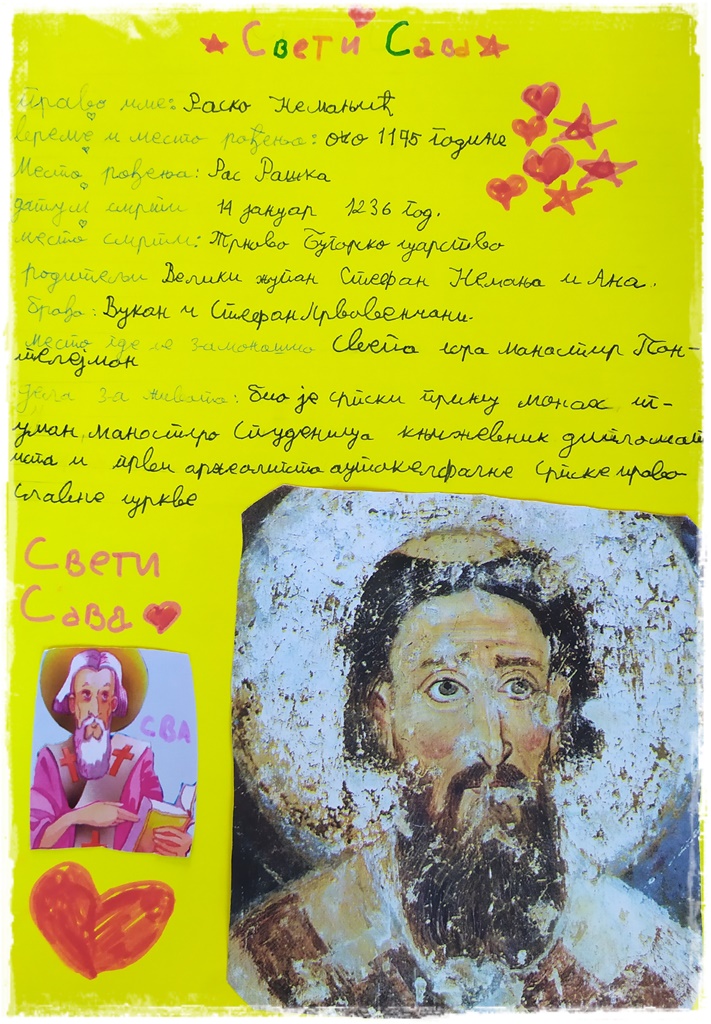 Свети Сава
Право име: Раско Немањић
време и место рођења: око 1175 године
Место рођења: Рас Рашка
датум смрти 14 јануар 1236 год.
место смрти: Трново Бугарко царство
родитељи Велики жупан Стефан Немања и Ана.
браћа: Вукан и Стефан Првовенчани.
место где се замонашио Света гора манастир Пан-
телејмон
дела за живота: био је српски принц монах иг-
уман, манастира Студеница књижевник дипломат
иста и први аутокелфалне српске право
славене цркве
Свети
Сава
СВА